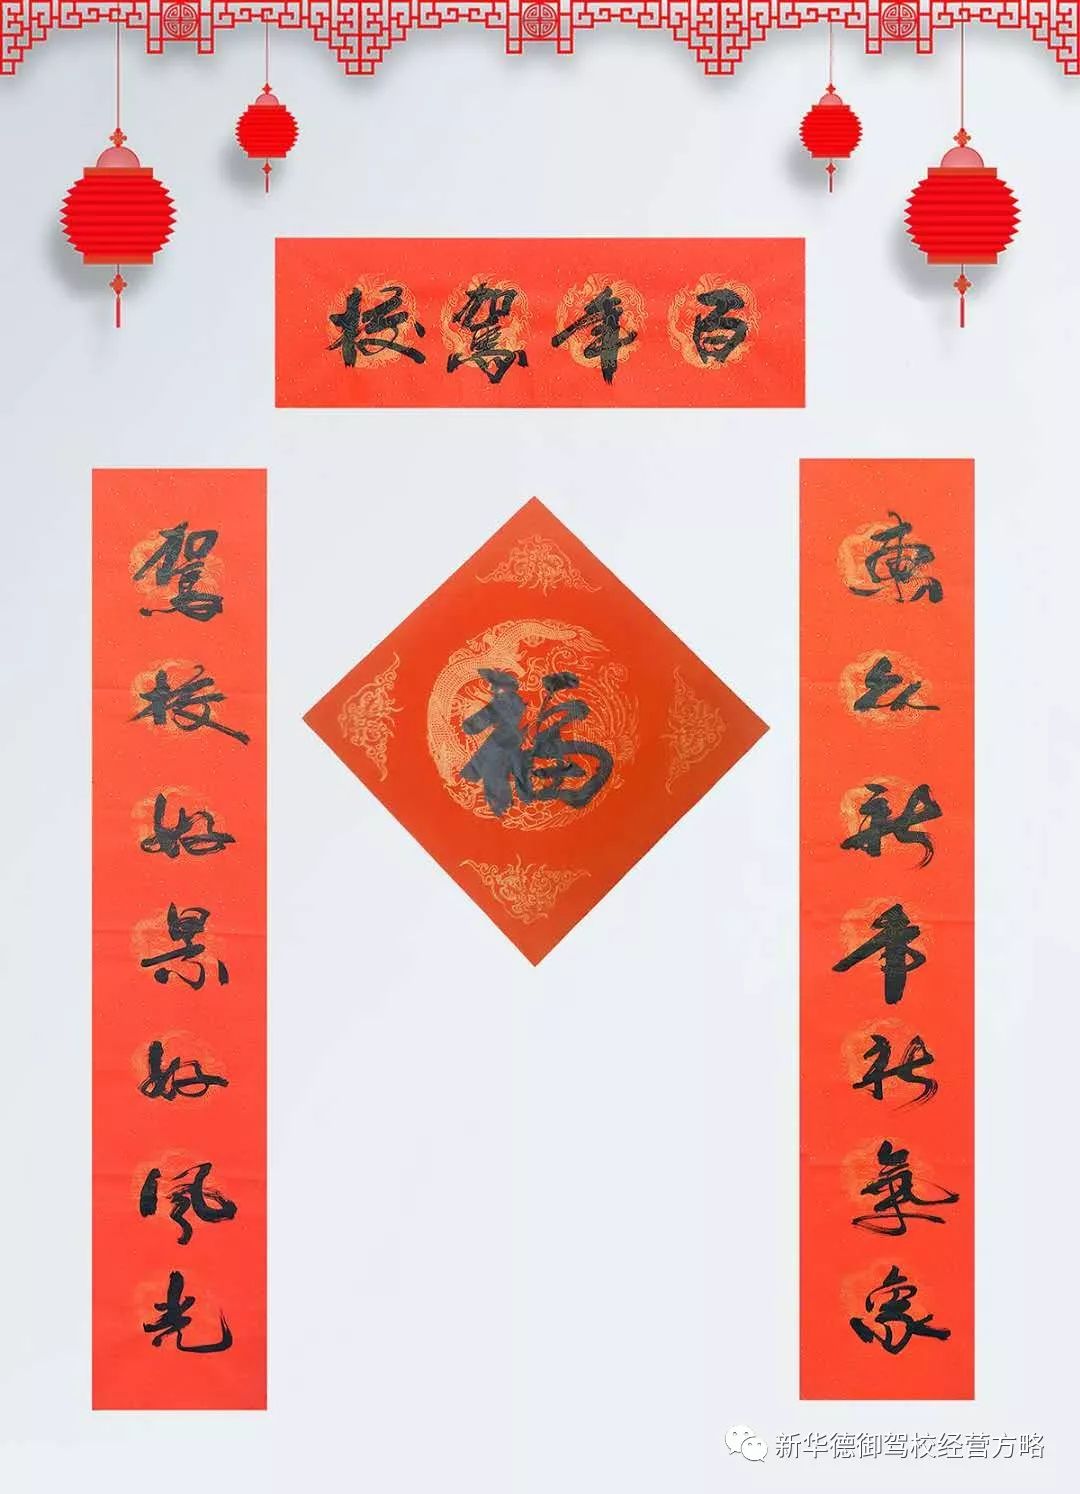 百年駕校
惠众新年新氣象
駕校好景好風光
福
新华德御驾校经营方略